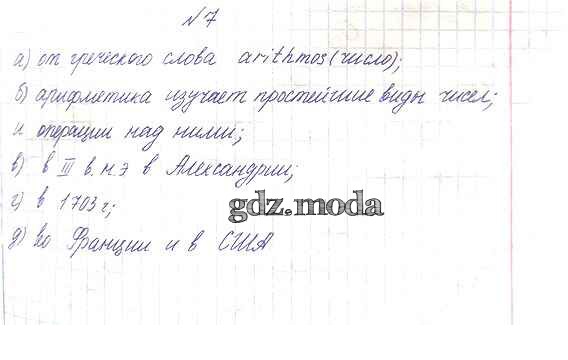 №7
а) от греческого слова arithmos (число);
б) арифметика изучает простейшие виды чисел;
и операции над ними;
в) в III в. н.э в Александрии;
г) в 1703 г;
gdz.moda
д) во Франции и в США